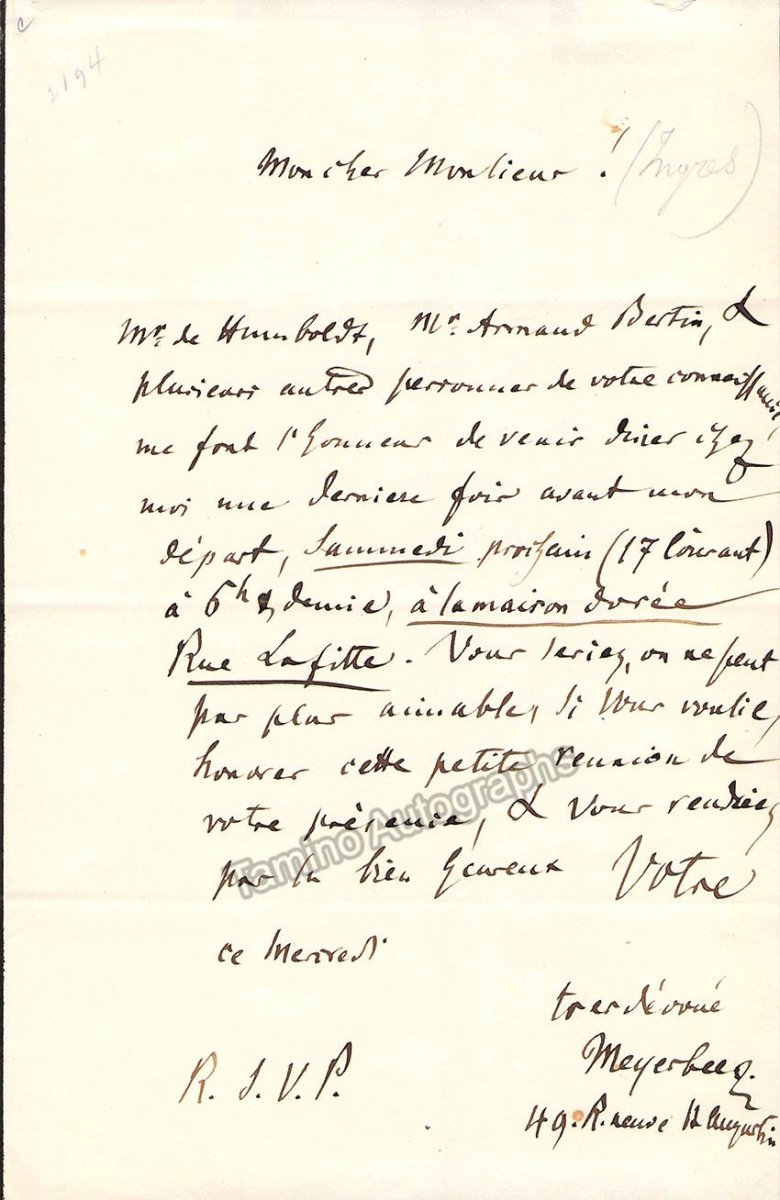 2194
Mon cher Monsieur ! (Ingres)
Mr. de Humboldt, Mr. Armand Bertin, &
plusieurs autres personnes de votre connaissance,
me font l'honneur de venir diner chez
moi une derniere fois avant mon
départ, Sammedi prochain (17 Courant)
à 6h & demie, à la maison dorée
Rue Lafitte. Vous seriez, on ne peut
pas plus aimable, si vous vouliez
honorer cette petite reunion de
votre présence, & vous rendriez
par là bien heureux Votre
ce Mercredi
tres dévoué
Meyerbeer.
R. S. V. P.
49. R. neuve St Augustin
Tamino Autographs